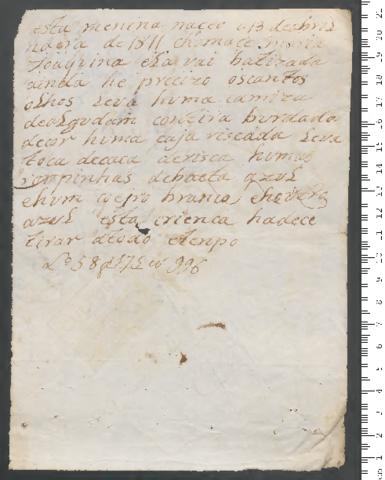 esta menina naceo a 13 de abril
ndera de 1811 chamace maria
Joaquina elarvai batizada
ainda he precizo os cantos
olhos Leva huma camiza
de algudam com tira burdada
de cor huma caja riscada Leva
toca de caca a erisca humas
rompinhas de baeta azul
e hum coejro branco,
azul esta crienca hadece
tirar atodo otenpo
Lo 58 f 175 v 996